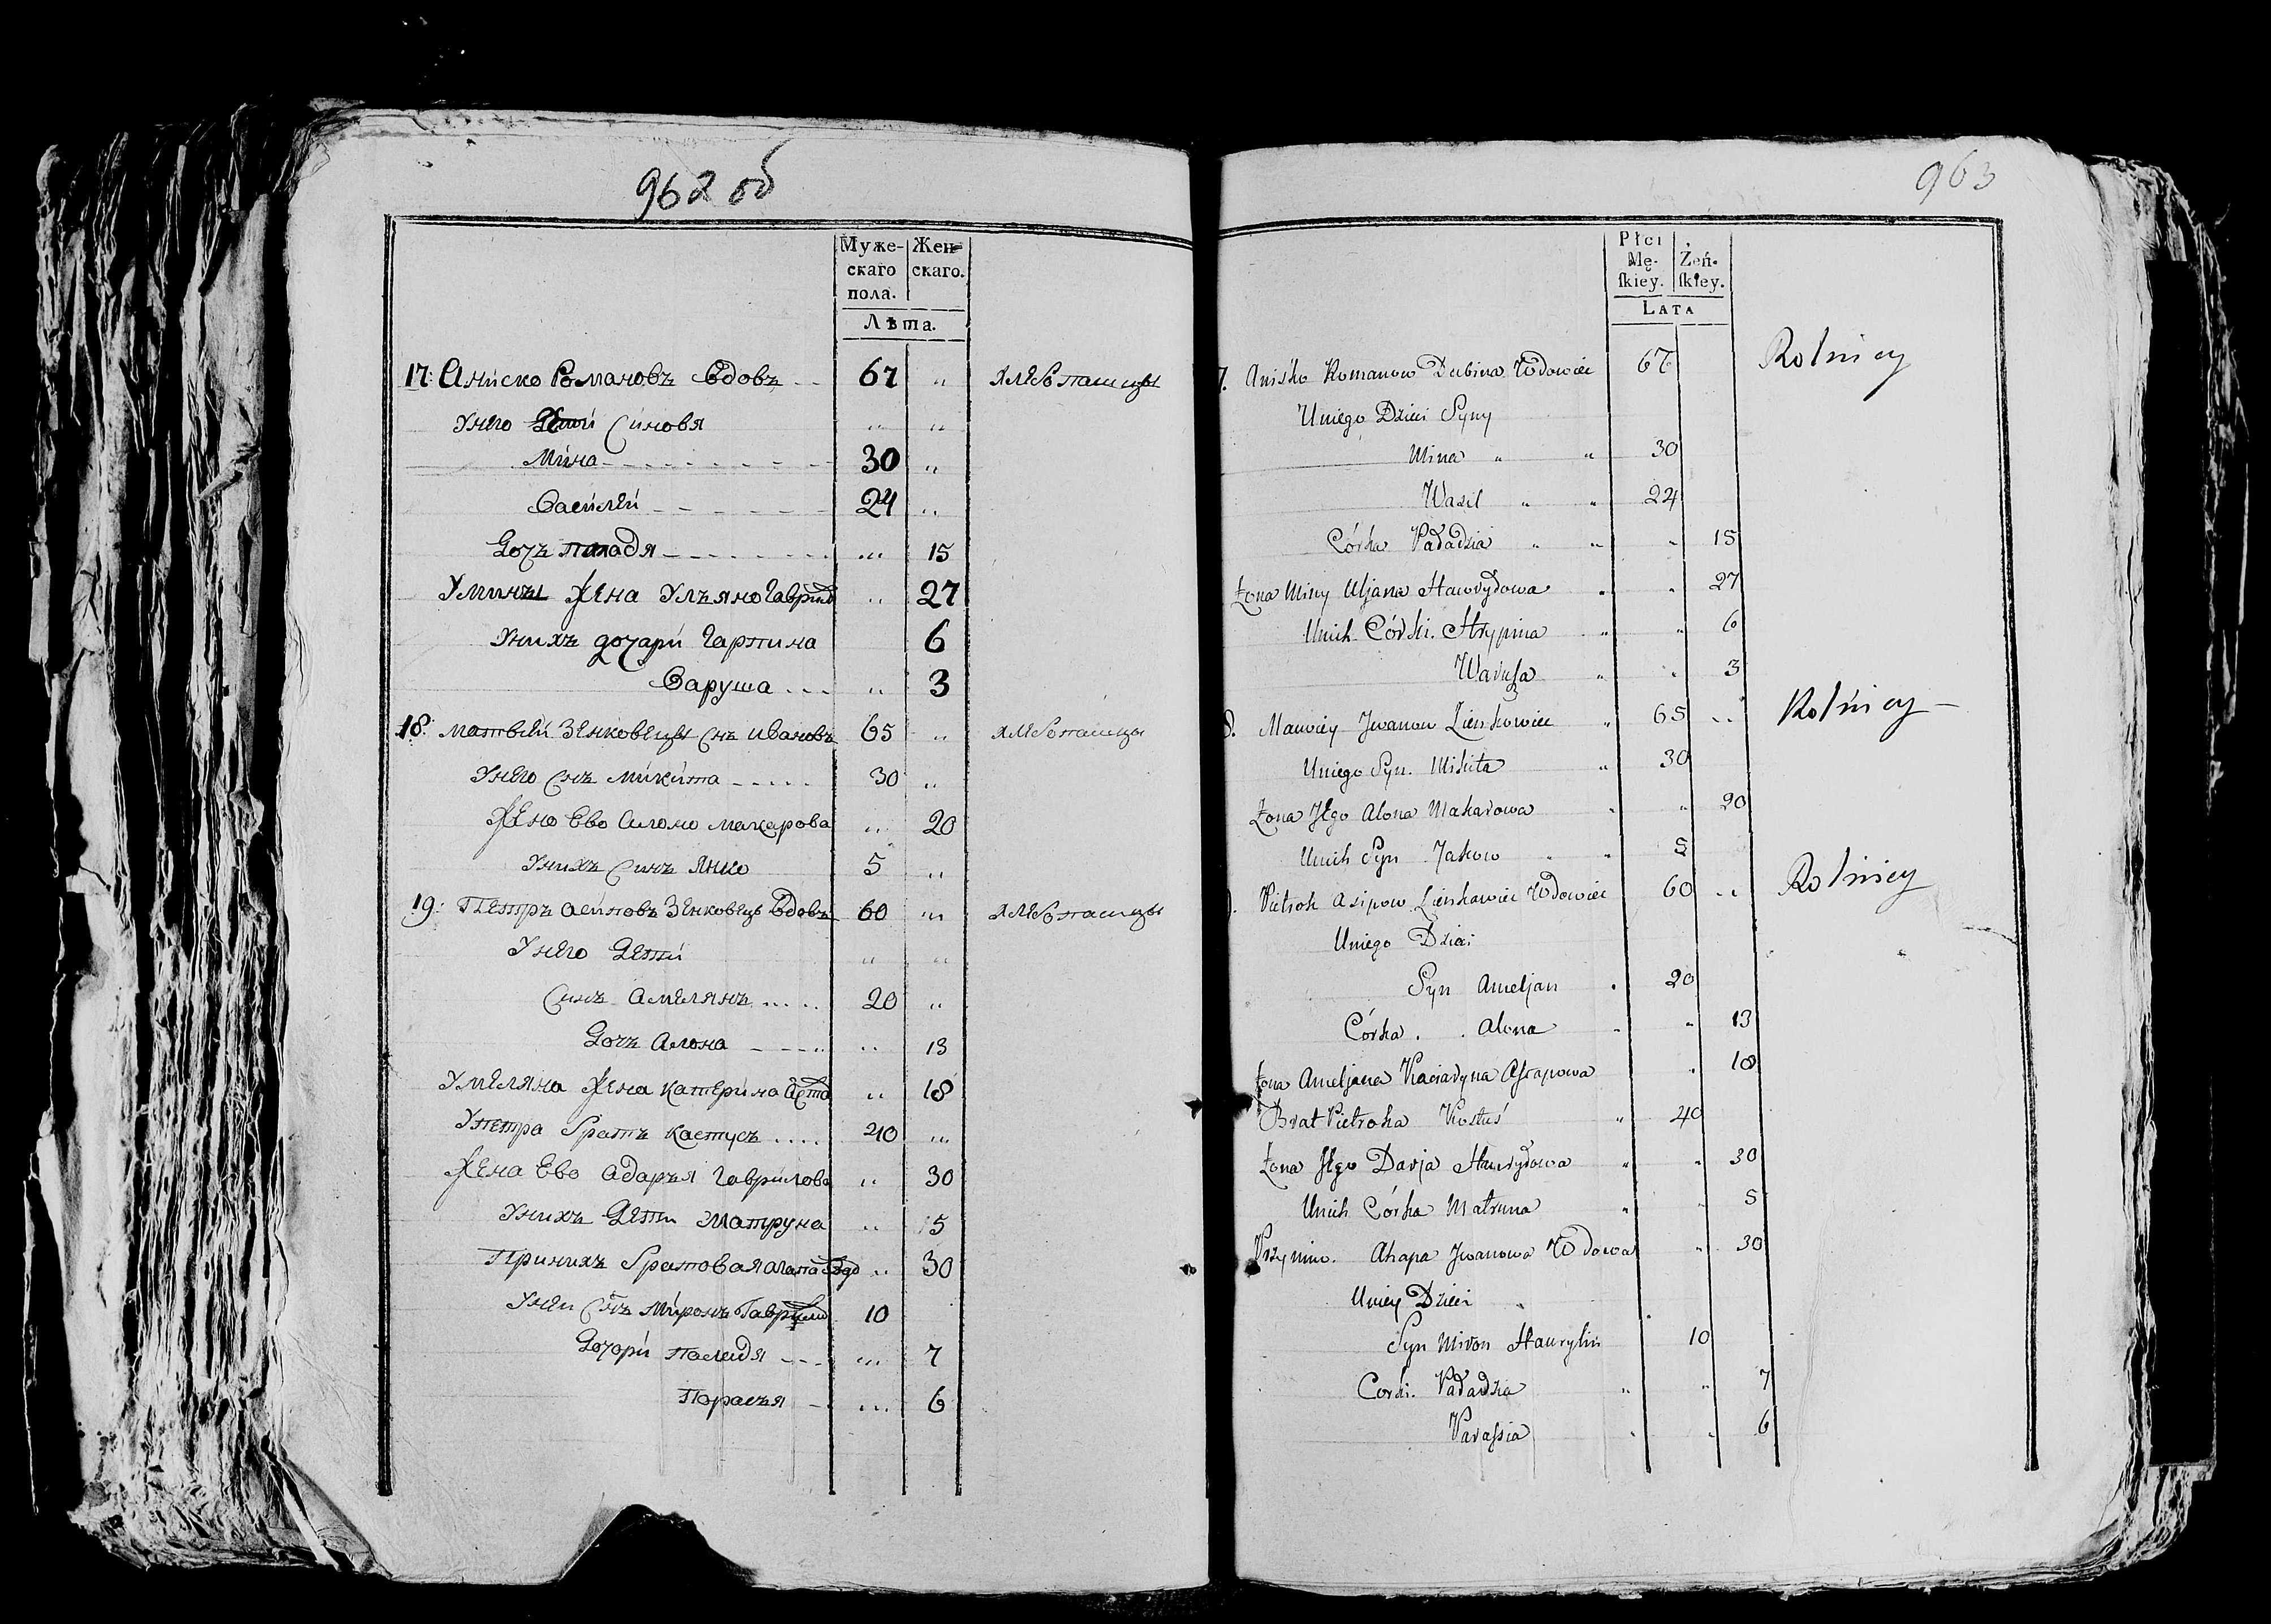 962 об
Муже- Жен-
скаго скаго.
пола.
Лѣта.
17: Аниско Романовъ Вдовъ 67 „ хлѣбопашцы
Унего Дети Синовя „ „
Мина 30 „
Василей 24 „
Дочъ Паладя „ 15
Умины Жена Улъяна Гаврид „ 27
Унихъ дочари Гарпина 6
Варуша „ 3
18: матвѣй Зенковецы Снъ ивановъ 65 „ хлѣбопашцы
Унего Снъ микита 30 „
Жено Ево Алоно макарова „ 20
Унихъ Синъ Янко 5 „
19: Петръ асиповъ Зенковецъ Вдовъ 60 „ хлѣбопашцы
Унего Дети „ „
Синъ Амелянъ 20 „
Дочъ Алона „ 13
Умеляна Жена катерина „ 18
Упетра братъ кастусъ 40 „
Жена Ево адаръя Гаврилова „ 30
Унихъ Дети Матруна „ 5
Принихъ братовая агапа вдо „ 30
Унеи Снъ Миронъ Гаврилов 10
Дочори паладя „ 7
Парасъя „ 6
963
Płci
Mę- Żeń-
skiey. skiey.
LATA
7. Aniśko Romanow Dubina Wdowiec 67 Rolnicy
Uniego Dzieci Syny
Mina „ „ 30
Wasil „ „ 24
Córka Paładzia „ „ „ 15
Żona Miny Uljana Hawrydowa „ „ 27
Unich Córki. Hrypina „ „ 6
Warusa „ „ 3
8. Mauciey Jwanow Zienkowiec „ 65 „ Rolnicy –
Uniego Syn. Mikita „ 30
Żona Jego Alona Makarowa „ „ 20
Unich Syn Jakow „ „ 5
9. Pietrok Asipow Zienkowiec Wdowiec 60 „ Rolnicy
Uniego Dzieci
Syn Ameljan „ 20
Córka . . Alona „ „ 13
Żona Ameljana Kaciaryna Astapowa „ 18
Brat Pietroka Kostuś „ 40
Żona Jego Darja Hawryłowa „ „ 30
Unich Córka Matruna „ „ 5
Przynim. Ahapa Jwanowa Wdowa „ 30
Uniey Dzieci „
Syn Miron Hawrylin 10
Corki. Paładzia „ „ 7
Parassia „ „ 6